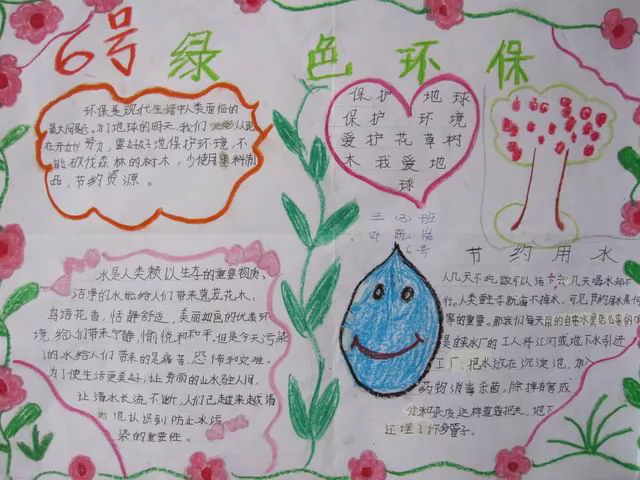 6号 绿色环保
环保是现代生活中人类面临的
最大问题。为了地球的明天，我们
从现在开始努力，要好好地保护环境，不
能砍伐森林的树木，少使用塑料制
品，节约资源。
保护 地球
保护 环境
爱护花草树
木 我爱地
球
三 班
6号
水是人类赖以生存的重要物质，
洁净的水能给人们带来葱茏花木、
鸟语花香，恬静舒适，美丽如画的优美环
境，给人们带来宁静，愉悦和和平。但是今天污染
了的水给人们带来的是痛苦、恐怖和灾难。
为了使生活更美好，让秀丽的山水驻人间，
让清水长流不断，人们已越来越清
地认识到防止水污
染的重要性。
节约用水
人几天不吃饭可以活，
几天喝水却不
行。人类重生就离不掉水，可见节约用水是
的重要。那我们每天用的自来水是
是自来水厂的工人将江河或地下水引进
工厂，把水放在沉淀池，加
药物消毒杀菌，除掉有害成
分和杂质，这样直着把夫，地下
还埋了许多管子。